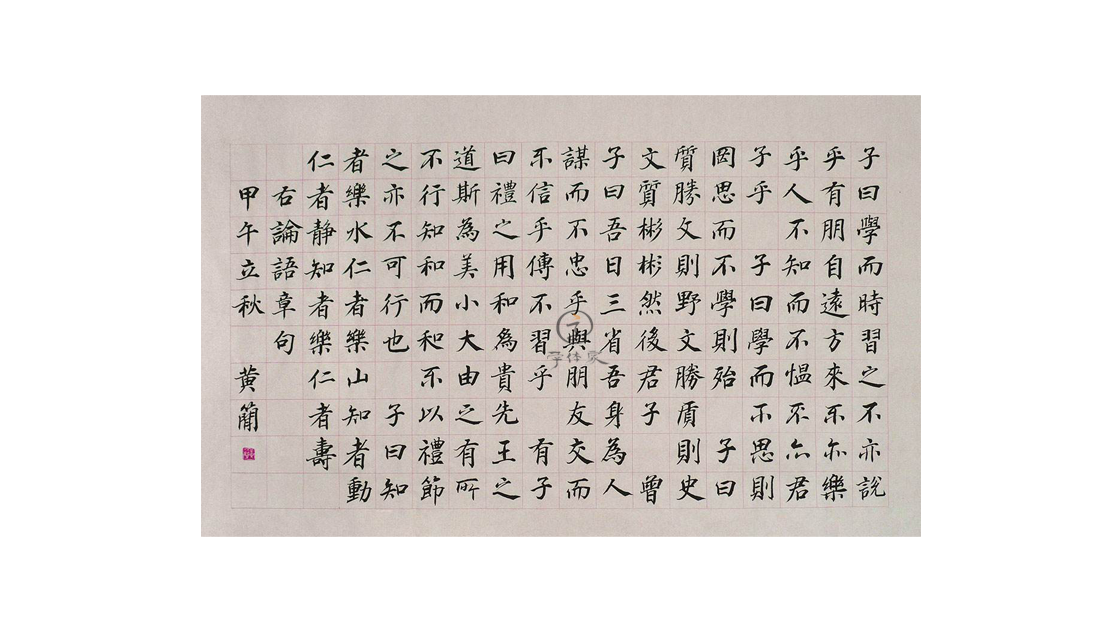 子曰學而時習之不亦説
乎有朋自遠方來不亦樂
乎人不知而不愠不亦君
子乎 子曰學而不思則
罔思而不學則殆 子曰
質勝文則野文勝質則史
文質彬彬然後君子 曾
子曰吾日三省吾身為人
謀而不忠乎與朋友交而
不信乎傳不習乎 有子
曰禮之用和為貴先王之
道斯為美小大由之有所
不行知和而和不以禮節
之亦不可行也 子曰知
者樂水仁者樂山知者動
仁者静知者樂仁者壽
右論語章句
甲午立秋 黄簡
字体家